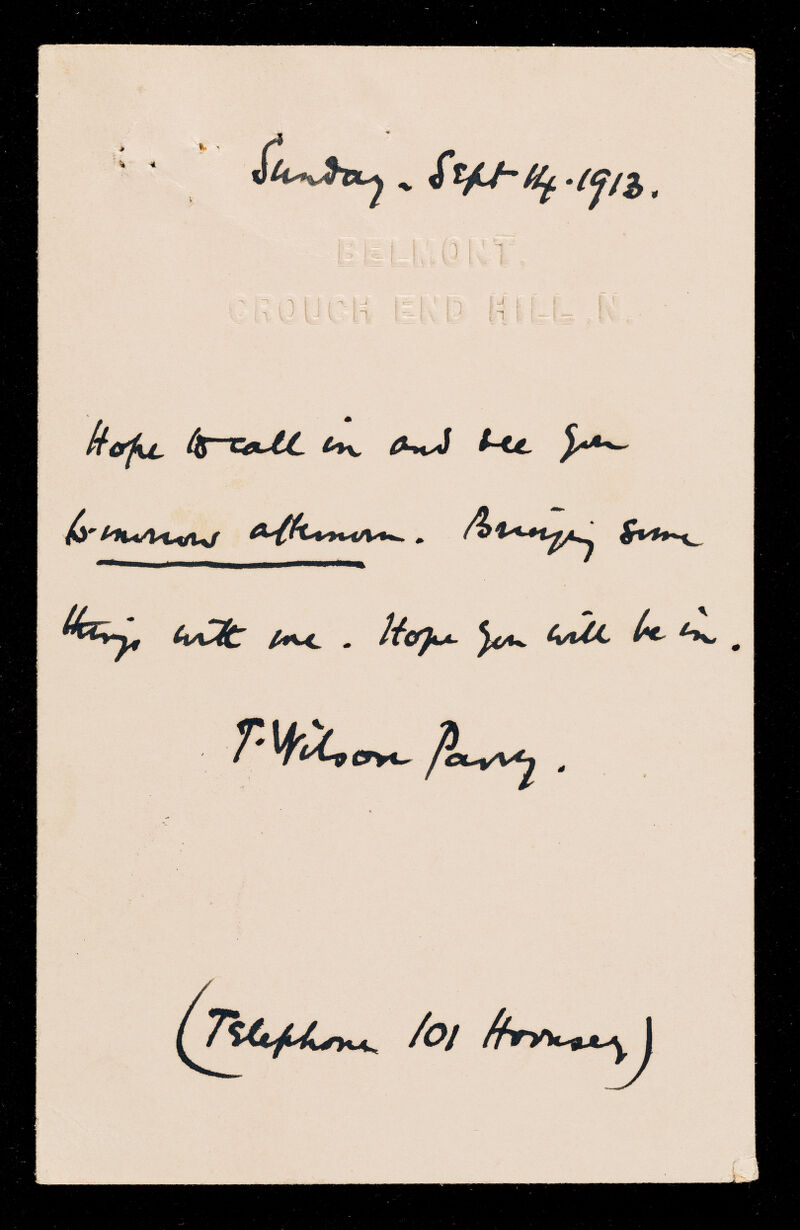 Sunday. Sept 14. 1913.
BELMONT.
CROUCH END HILL, N.
Hope to call in and see you
to-morrow afternoon. Bringing some
things with me. Hope you will be in.
T. Wilson Parry.
(Telephone 101 Hornsey)